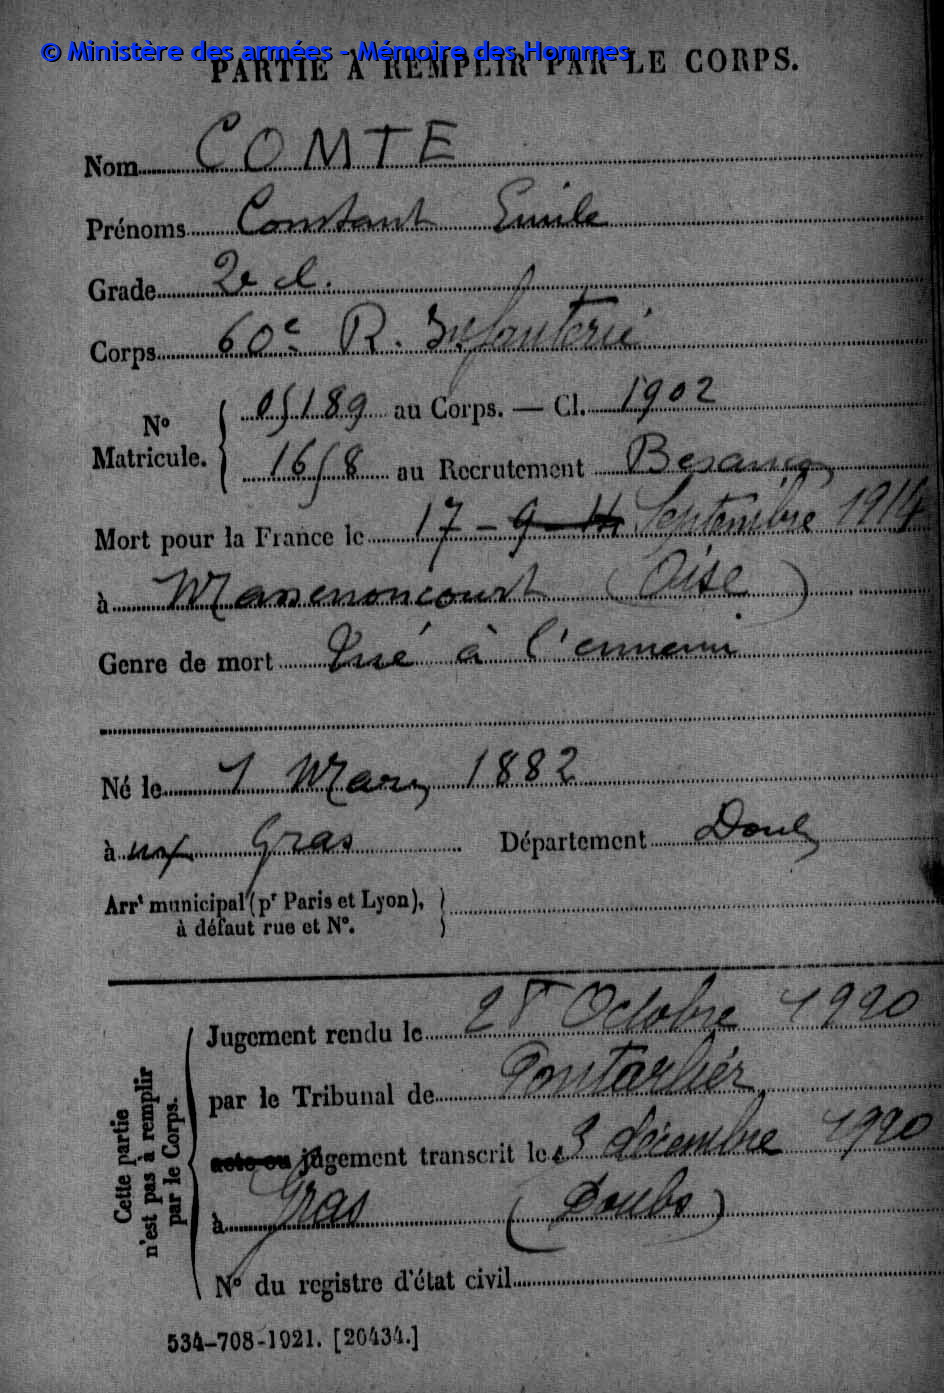 © Ministère des armées - Mémoire des Hommes
PARTIE À REMPLIR PAR LE CORPS.
Nom COMTE
Prénoms Constant Emile
Grade 2e cl.
Corps 60e R. Infanterie
No Matricule. { 05189 au Corps. — Cl. 1902
1658 au Recrutement Besançon
Mort pour la France le 17 - 9 - 14 Septembre 1914
à (Oise)
Genre de mort Tué à l'ennemi
Né le 1 Mars 1882
à Gras Département Doubs
Arrt municipal (pr Paris et Lyon), }
à défaut rue et No.
Cette partie
n'est pas à remplir
par le Corps.
Jugement rendu le 28 Octobre 1920
par le Tribunal de Pontarlier
acte ou jugement transcrit le 3 décembre 1920
à Gras (Doubs)
No du registre d'état civil
534-708-1921. [20434.]